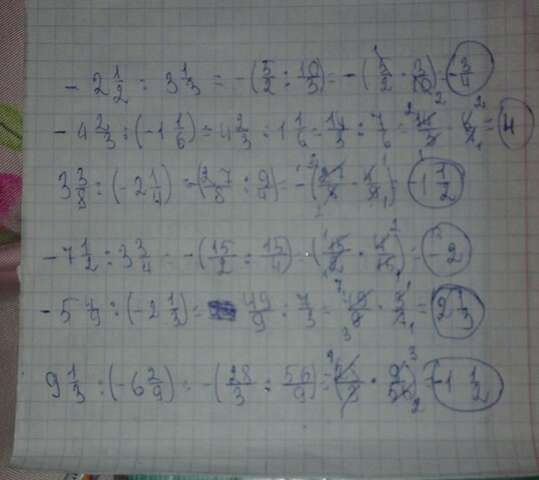 - 2 1/2 : 3 1/3 = -(5/2 : 10/3) = -(5/2 · 3/10) = -3/4
- 4 2/3 : (-1 1/6) = 4 2/3 : 1 1/6 = 14/3 : 7/6 = 14/3 · 6/7 = 4
3 3/8 : (-2 1/4) = -(27/8 : 9/4) = -(27/8 · 4/9) = -1 1/2
- 7 1/2 : 3 3/4 = -(15/2 : 15/4) = -(15/2 · 4/15) = -2
- 5 4/9 : (-2 1/3) = 49/9 : 7/3 = 49/9 · 3/7 = 2 1/3
9 1/3 : (-6 2/9) = -(28/3 : 56/9) = -(28/3 · 9/56) = -1 1/2